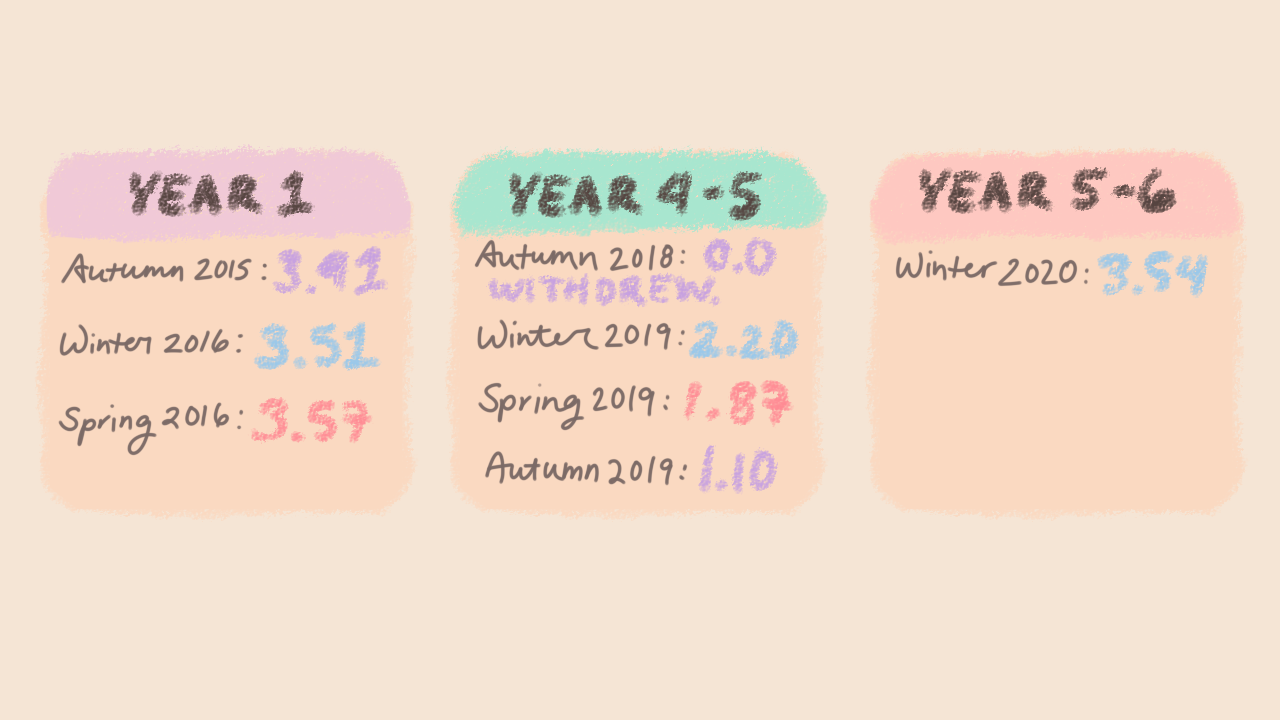 YEAR 1
Autumn 2015: 3.91
Winter 2016: 3.51
Spring 2016: 3.57
YEAR 4-5
Autumn 2018: 0.0
WITHDREW.
Winter 2019: 2.20
Spring 2019: 1.87
Autumn 2019: 1.10
YEAR 5-6
Winter 2020: 3.54